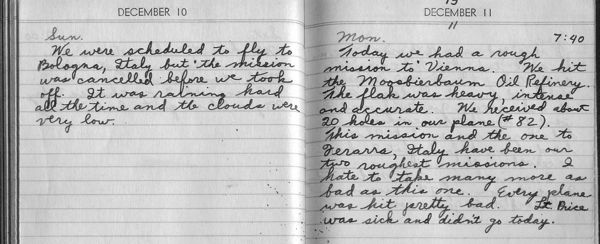 DECEMBER 10
Sun.
We were scheduled to fly to
Bologna, Italy but the mission
was cancelled before we took
off. It was raining hard
all the time and the clouds were
very low.
DECEMBER 11
11
Mon. 7:40
Today we had a rough
mission to Vienna. We hit
the Moosbierbaum Oil Refinery.
The flak was heavy, intense
and accurate. We received about
20 holes in our plane (#82).
This mission and the one to
Ferarra, Italy have been our
two roughest missions. I
hate to take many more as
bad as this one. Every plane
was hit pretty bad. Lt. Brice
was sick and didn't go today.